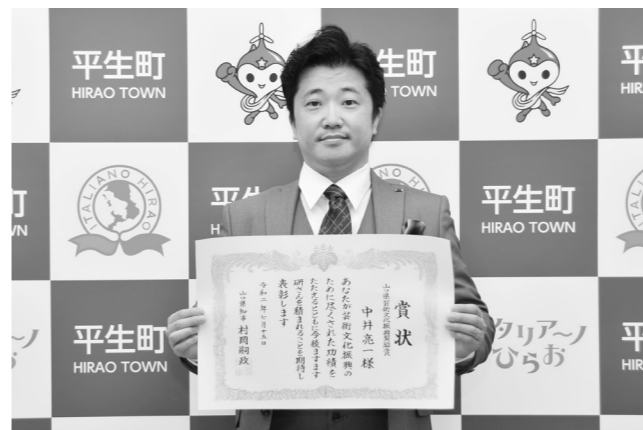 平生町
HIRAO TOWN
生町
TOWN
平生町
HIRAO TOWN
ITALIANO HIRAO
平生町
HIRAO TOWN
平生町
HIRAO TOWN
タリアーノ
ひらお
賞状
山口県芸術文化振興奨励賞
中井亮一様
あなたが芸術文化振興の
ために尽くされた功績を
たたえるとともに今後ますます
研さんを積まれることを期待し
表彰します
令和二年七月十五日
山口県知事 村岡嗣政